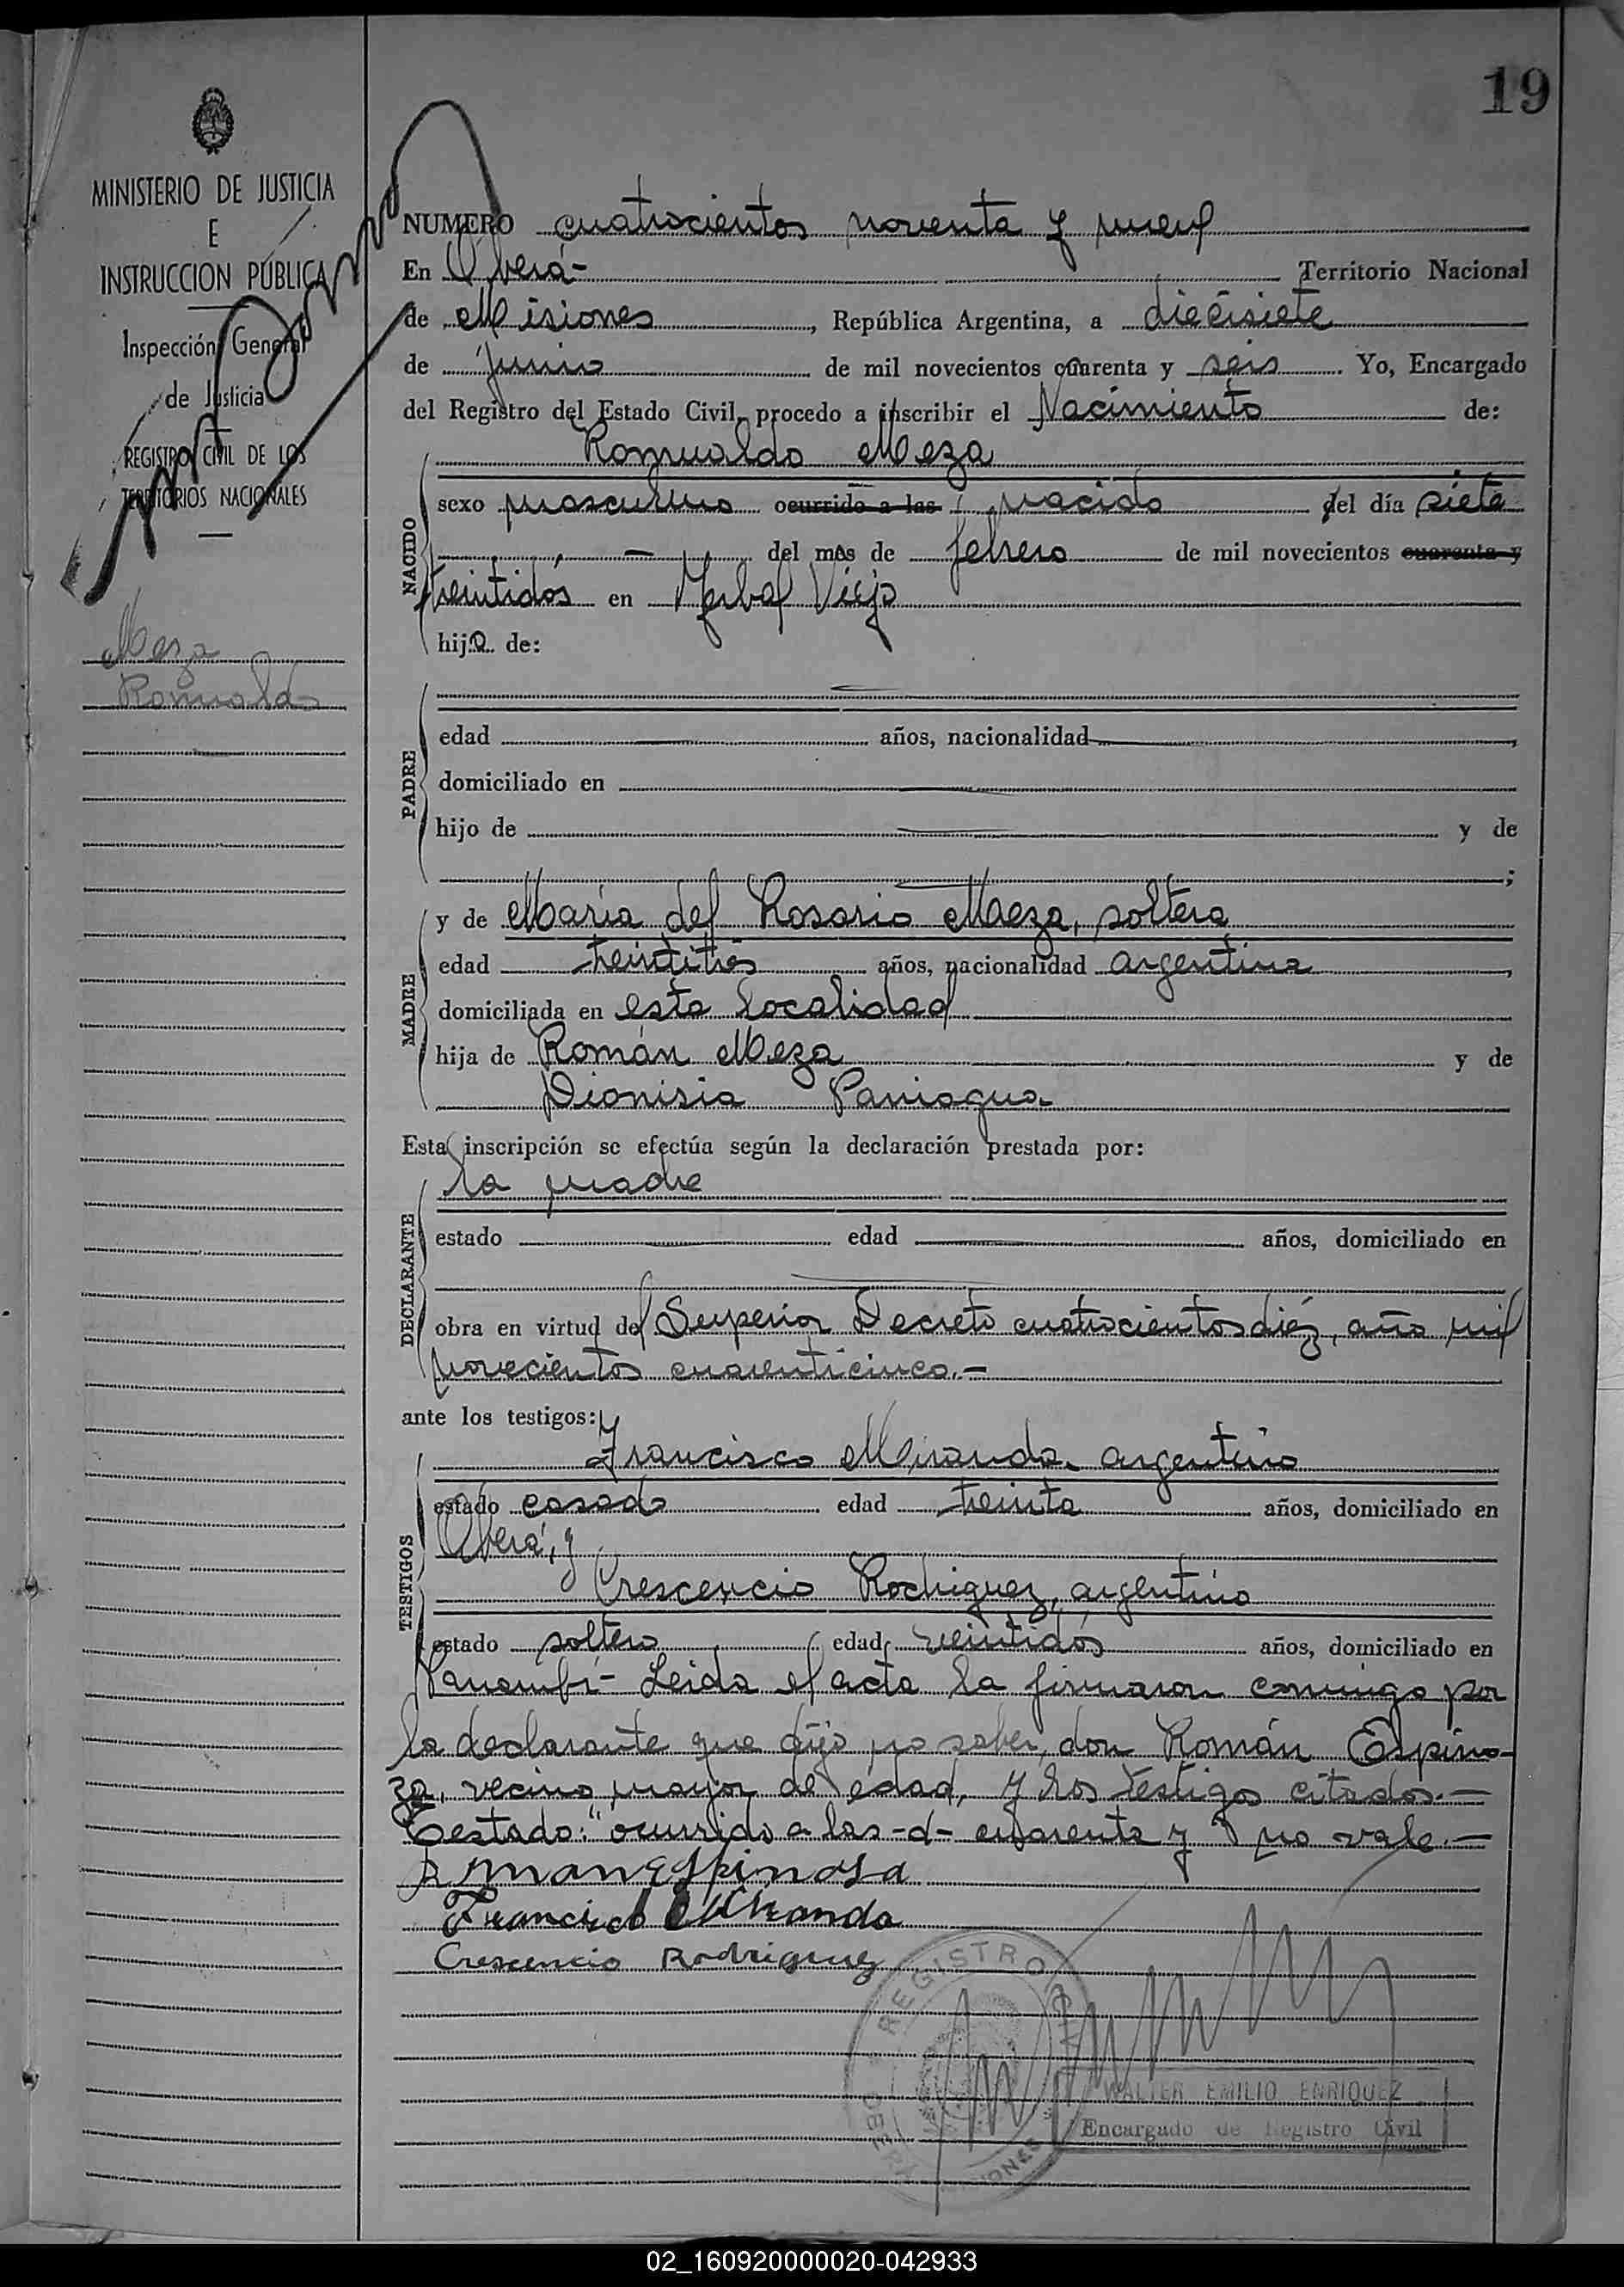 19
MINISTERIO DE JUSTICIA
E
INSTRUCCION PÚBLICA
Inspección General
de Justicia
REGISTRO CIVIL DE LOS
TERRITORIOS NACIONALES
Meza
Romualdo
NUMERO cuatrocientos noventa y nueve
En Oberá- Territorio Nacional
de Misiones, República Argentina, a diecisiete
de junio de mil novecientos cuarenta y seis. Yo, Encargado
del Registro del Estado Civil, procedo a inscribir el Nacimiento de:
Romualdo Meza
NACIDO
sexo masculino ocurrido a las nacido del día siete
- del mes de febrero de mil novecientos cuarenta y
treintidos en Yerbal Viejo
hijo de:
PADRE
edad años, nacionalidad
domiciliado en
hijo de y de
;
MADRE
y de María del Rosario Meza, soltera
edad treintitrés años, nacionalidad argentina,
domiciliada en esta localidad
hija de Román Meza y de
Dionisia Paniagua
Esta inscripción se efectúa según la declaración prestada por:
DECLARANTE
la madre
estado edad años, domiciliado en
obra en virtud del Superior Decreto cuatrocientos diéz, año mil
novecientos cuarenticinco.-
ante los testigos:
TESTIGOS
Francisco Miranda, argentino
estado casado edad treinta años, domiciliado en
Oberá, y
Crescencio Rodriguez, argentino
estado soltero edad veintidós años, domiciliado en
Panambí- Leida el acta la firmaron conmigo por
la declarante que dijo no saber, don Román Espino-
za, vecino, mayor de edad, y los testigos citados.-
Testado: "ocurrido a las -d- cuarenta y" no vale.-
Roman Espinosa
Francisco Miranda
Crescencio Rodriguez
REGISTRO CIVIL
OBERÁ MISIONES
WALTER EMILIO ENRIQUEZ
Encargado de Registro Civil
02_160920000020-042933